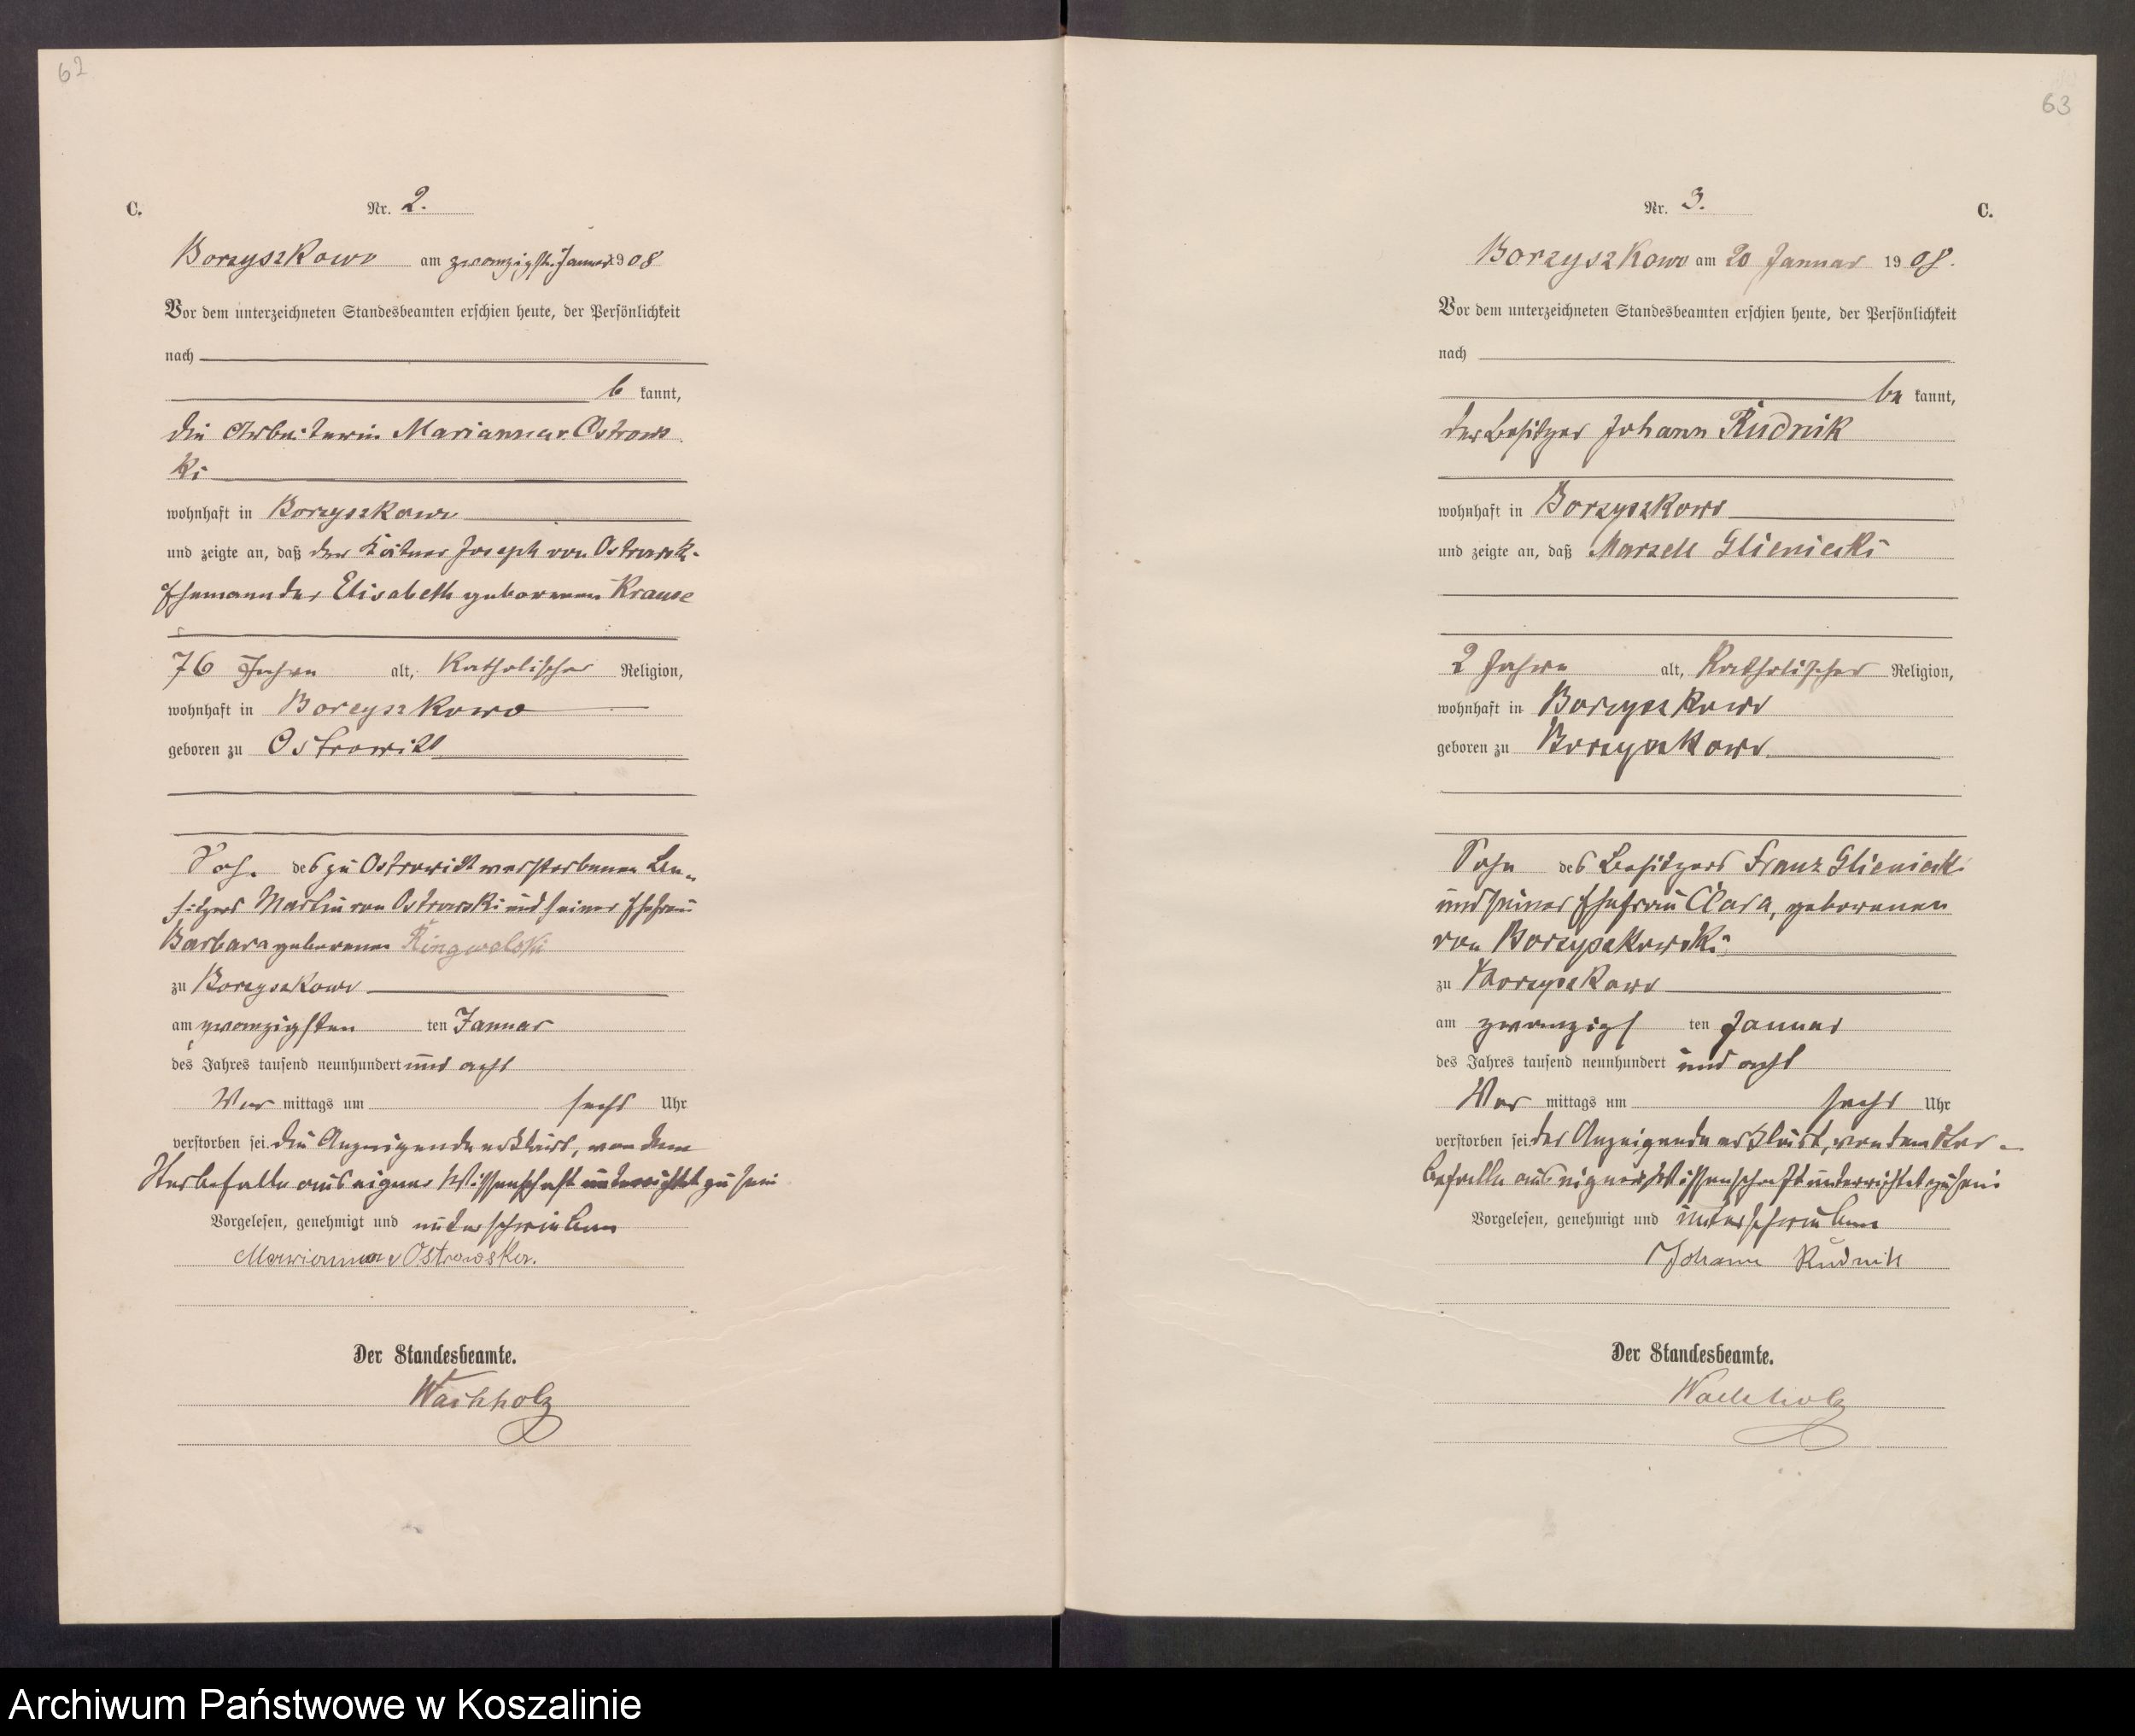 62
C.
Nr. 2.
Borzyszkowo am zwanzigst. Januar 1908
Vor dem unterzeichneten Standesbeamten erschien heute, der Persönlichkeit
nach
b kannt,
die Arbeiterin Marianna v. Ostrows
ki
wohnhaft in Borzyszkowo
und zeigte an, daß der Kätner Joseph von Ostrowsk-
Ehemann der Elisabeth geborenen Krause
76 Jahre alt, katholischer Religion,
wohnhaft in Borzyszkowo
geboren zu Ostrowitt
Soh. des zu Ostrowitt verstorbenen Be-
sitzers Martin von Ostrowski und seiner Ehefrau
Barbara geborenen Ringwelski
zu Borzyszkowo
am zwanzigsten ten Januar
des Jahres tausend neunhundert und acht
Vor mittags um sechs Uhr
verstorben sei. Die Anzeigende erklärt, von dem
Sterbefalle aus eigener Wissenschaft unterrichtet zu sein
Vorgelesen, genehmigt und unterschrieben
Marianna v Ostrowska.
Der Standesbeamte.
Wachholz
63
Nr. 3.
C.
Borzyszkowo am 20 Januar 1908.
Vor dem unterzeichneten Standesbeamten erschien heute, der Persönlichkeit
nach
be kannt,
der Besitzer Johann Rudnik
wohnhaft in Borzyszkowo
und zeigte an, daß Marzell Glieniecki
2 Jahre alt, katholischer Religion,
wohnhaft in Borzyszkowo
geboren zu Borzyszkowo
Sohn des Besitzers Franz Glienieck.
und seiner Ehefrau Clara, geborenen
von Borzyszkowski
zu Borzyszkowo
am zwanzigs ten Januar
des Jahres tausend neunhundert und acht
Vor mittags um sechs Uhr
verstorben sei. Der Anzeigende erklärt, von dem Ster-
befalle aus eigner Wissenschaft unterrichtet zu sein
Vorgelesen, genehmigt und unterschrieben
Johann Rudnik
Der Standesbeamte.
Wachholz
Archiwum Państwowe w Koszalinie